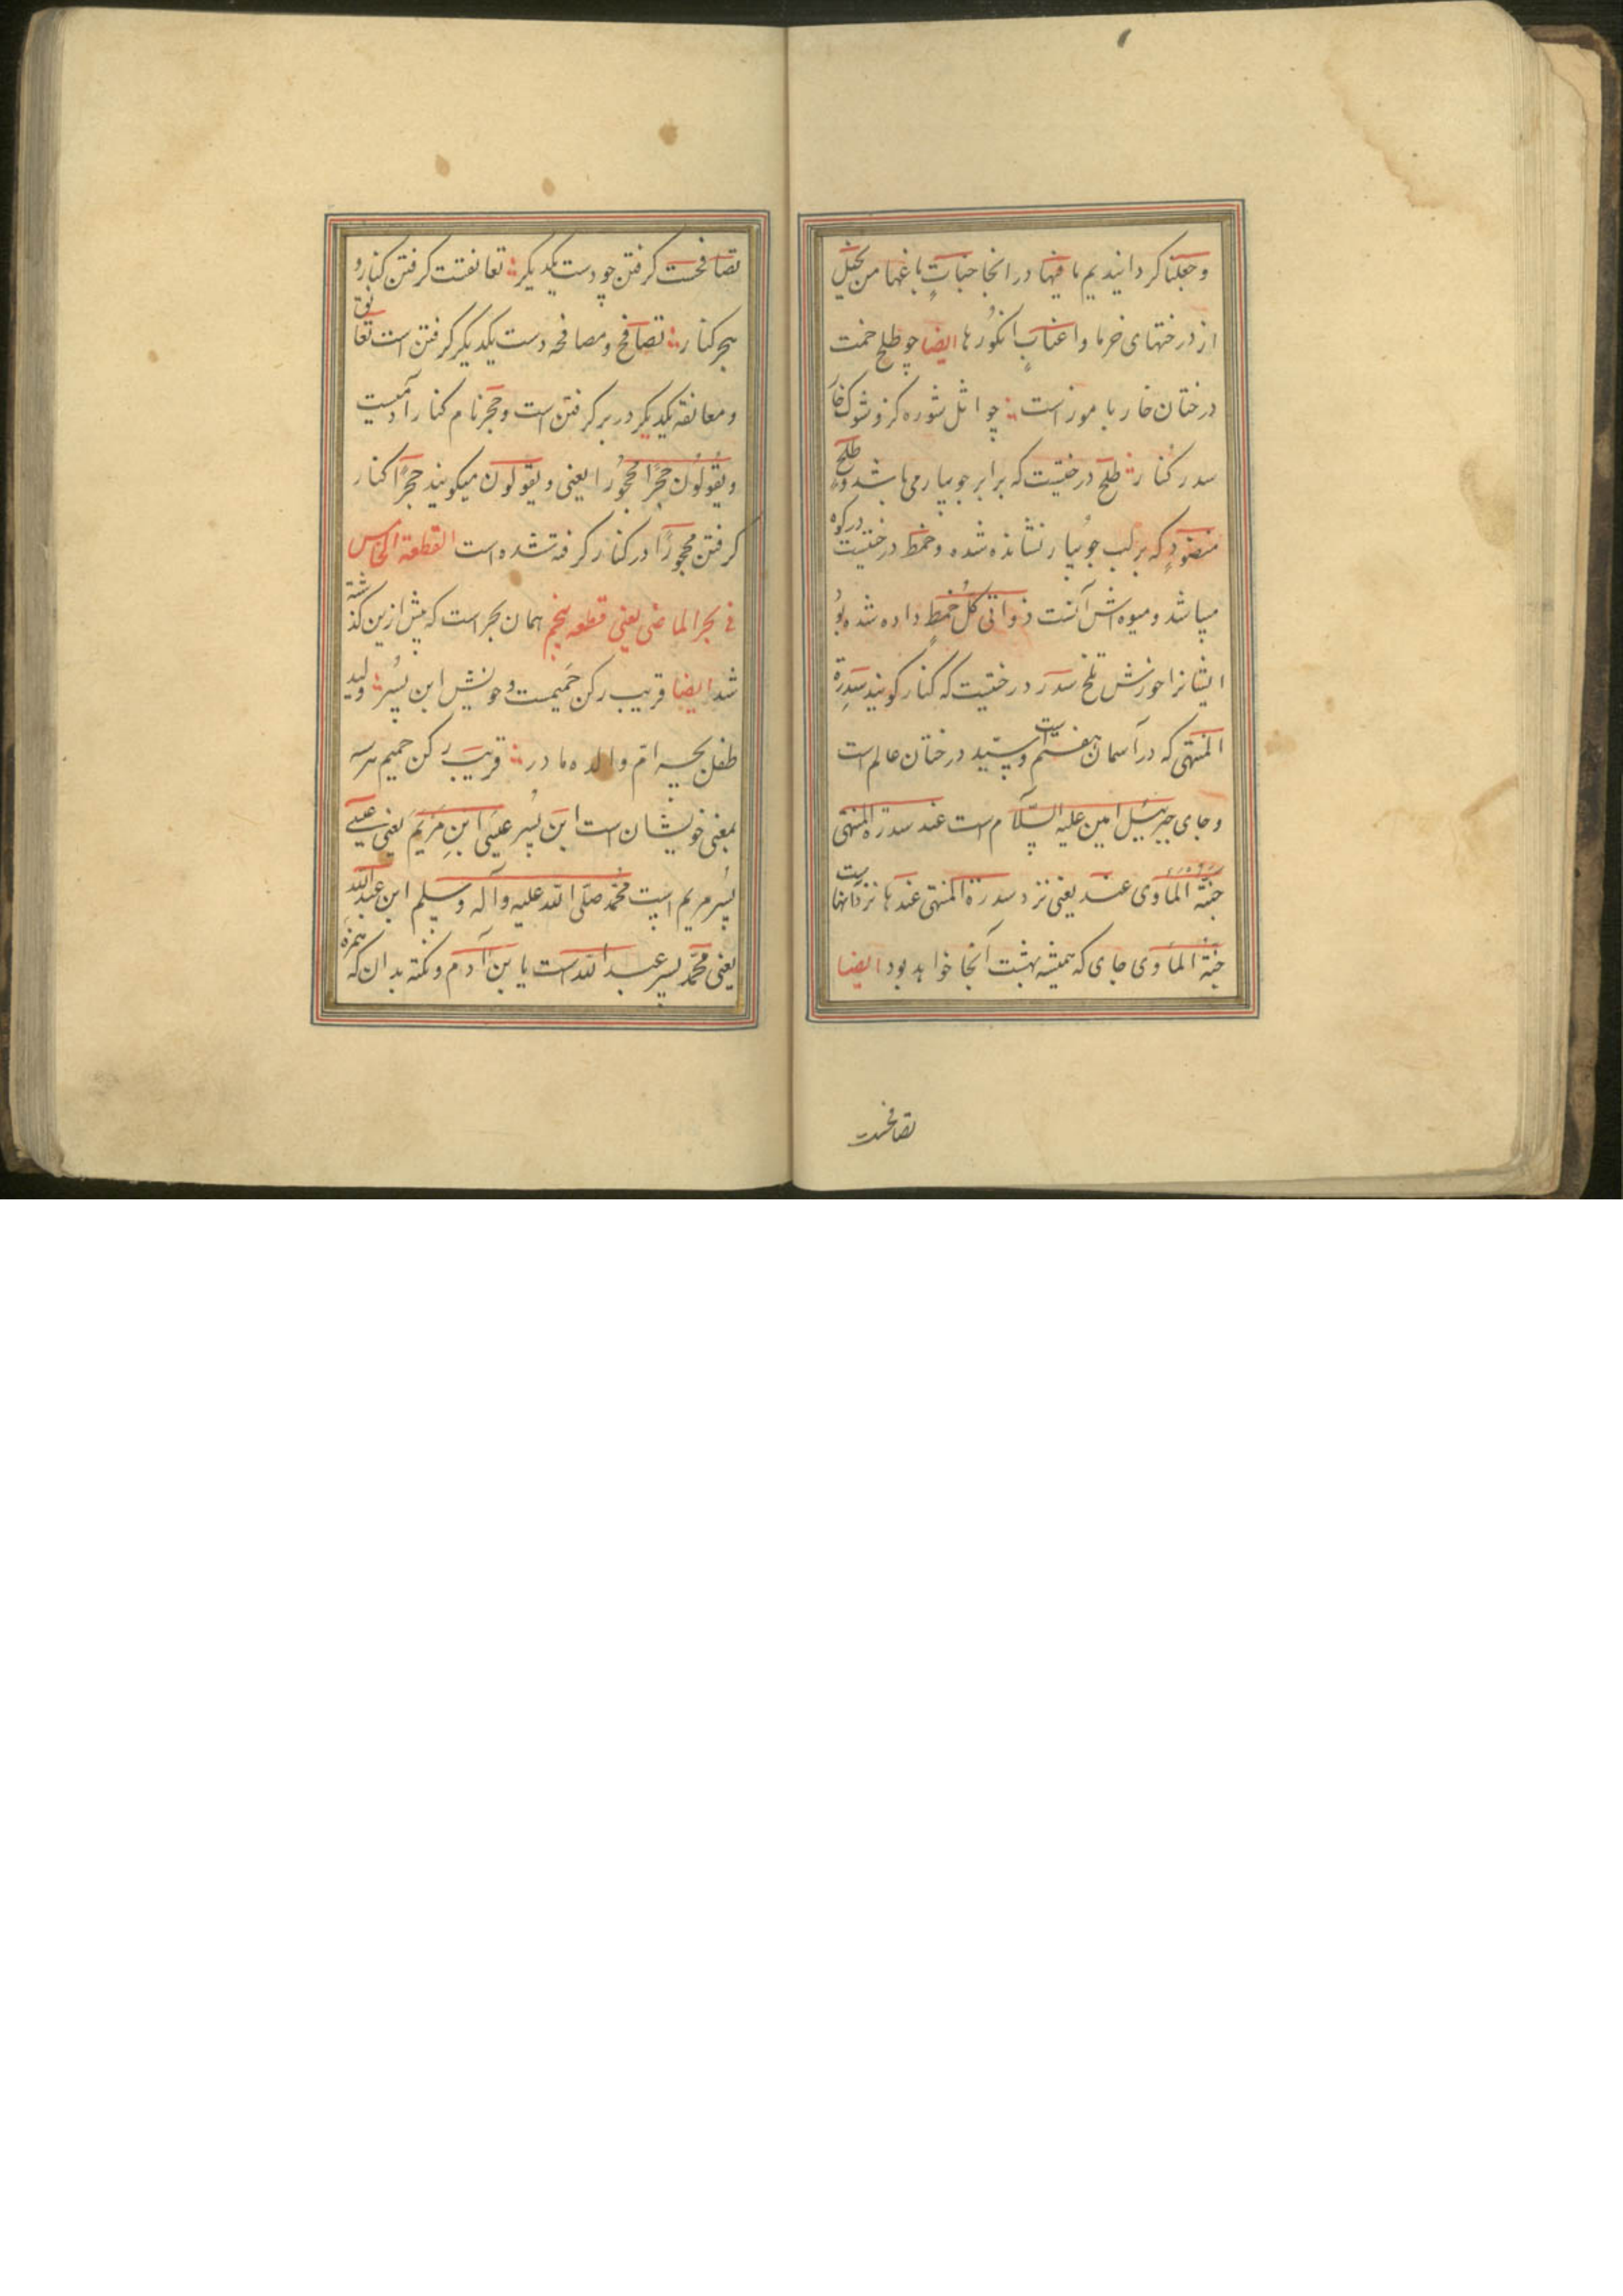 وجعلنا کردانیدیم ما فیها در انجا جناتٍ باغها من نخیل
از درختهای خرما واعنابٍ انکورها ایضا چو طلح خمت
درختان خار با موز است چو اثل شوره کز و شوک خار
سدر کنار طلح درختیست که برابر جویبار می باشد وطلح
منضودٍ که بر لب جویبار نشانده شده وخمط درختیست در کوه
میباشد ومیوه اش آنست ذواتی اکل خمطٍ داده شده بود
ایشانرا خورش تلخ سدر درختیست که کنار کویند سدرة
المنتهی که در آسمان هفتم است وسید درختان عالم است
وجای جبرییل امین علیه السّلام است عند سدرة المنتهی
جنّة المأوی عند یعنی نزد سدرة المنتهی عندها نزد آنهاست
جنّة المأوی جای که همیشه بهشت آنجا خواهد بود ایضا
تصافحست
تصافحست کرفتن چو دست یکدیکر تعانقست کرفتن کنار و
حجر کنار تصافح ومصافحه دست یکدیکر کرفتن است تعانق
ومعانقه یکدیکر در بر کرفتن است وحجر نام کنار آدمیست
ویقولون حجرًا محجورا یعنی ویقولون میکویند حجرًا کنار
کرفتن محجورًا در کنار کرفته شده است القطعة الخامس
فی بحر الماضی یعنی قطعه پنجم همان بحر است که پیش ازین کذشته
شد ایضا قریب رکن حمیمست وخویش ابن پسر ولید
طفل بچه امّ والده مادر قریب رکن حمیم هر سه
بمعنی خویشان است ابن پسر عیسی ابنِ مریم یعنی عیسی
پسر مریم است محمّد صلّی الله علیه وآله وسلم ابن عبدالله
یعنی محمّد پسر عبدالله است یا بن آدم ونکته بدان که همزه